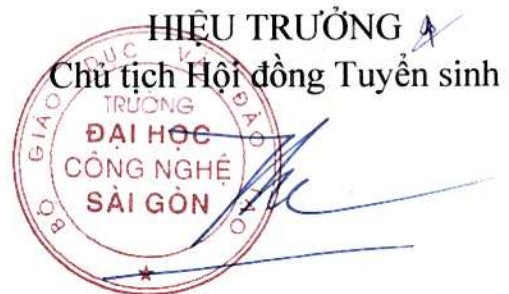 HIỆU TRƯỞNG
Chủ tịch Hội đồng Tuyển sinh
BỘ GIÁO DỤC VÀ ĐÀO TẠO
TRƯỜNG
ĐẠI HỌC
CÔNG NGHỆ
SÀI GÒN